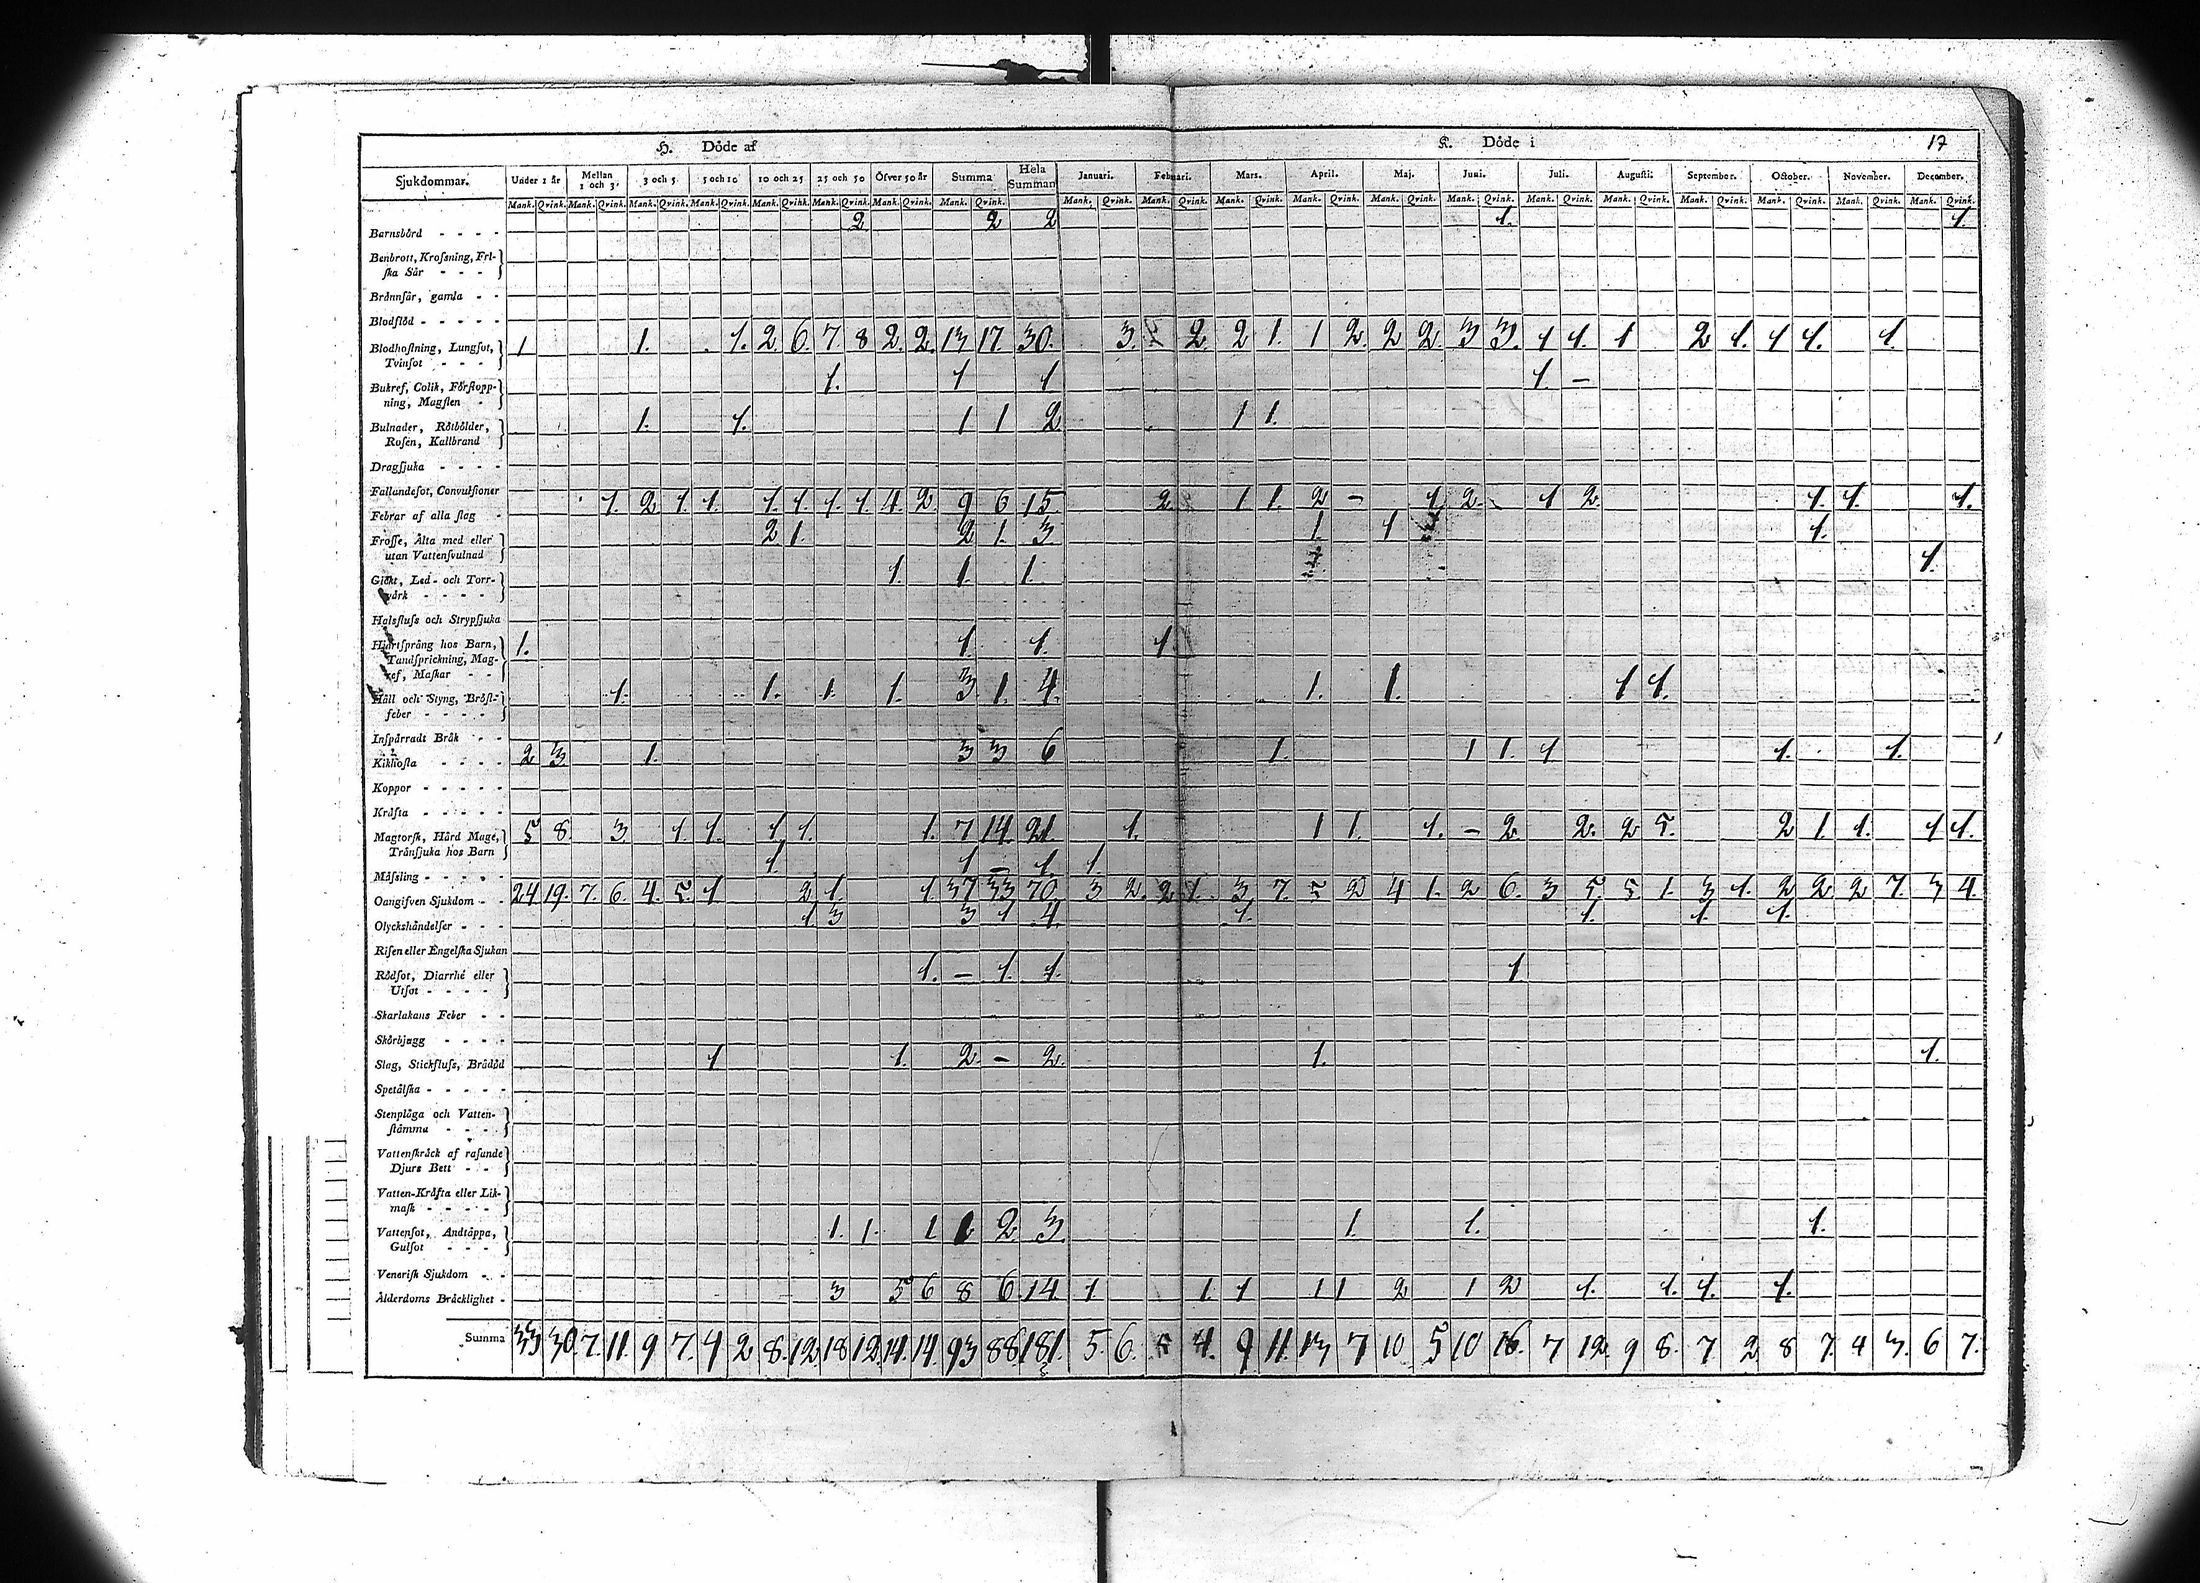 H. Döde af K. Döde i 17
Sjukdommar. Under 1 år Mellan 1 och 3. 3 och 5 5 och 10 10 och 25 25 och 50 Öfver 50 år Summa Hela Summan Januari. Februari. Mars. April. Maj. Juni. Juli. Augusti. September. October. November. December.
Mank. Qvink. Mank. Qvink. Mank. Qvink. Mank. Qvink. Mank. Qvink. Mank. Qvink. Mank. Qvink. Mank. Qvink. Mank. Qvink. Mank. Qvink. Mank. Qvink. Mank. Qvink. Mank. Qvink. Mank. Qvink. Mank. Qvink. Mank. Qvink. Mank. Qvink. Mank. Qvink. Mank. Qvink. Mank. Qvink.
Barnsbörd - - - - 2 2 2 1. 1.
Benbrott, Krossning, Fri-
ska Sår - - -
Brånnsår, gamla - -
Blodflöd - - - - -
Blodhostning, Lungsot, 1 1. 1. 2. 6. 7 8 2. 2. 13 17. 30. 3. 2. 2 1. 1 2. 2 2. 3 3. 1 1. 1 2 1. 1 1. 1.
Tvinsot - - -
Bukref, Colik, Förstopp- 1. 1 1 1. -
ning, Magsten -
Bulnader, Rötbölder, 1. 1. 1 1 2 1 1.
Rosen, Kallbrand
Dragsjuka - - - -
Fallandesot, Convulsioner
Febrar af alla slag - 1. 2 1. 1. 1. 1. 1. 1. 4. 2 9 6 15. 2. 1 1. 2 - 1. 2. 1 2. 1. 1. 1.
Frosse, Älta med eller 2 1. 2 1. 3. 1. 1 1.
utan Vattensvulnad
Gickt, Led- och Torr- 1. 1. 1. 1.
värk - - - -
Halsfluss och Strypsjuka
Hjärtsprång hos Barn, 1. 1. 1. 1.
Tandsprickning, Mag-
ref, Maskar - -
Håll och Styng, Bröst- 1. 1. 1. 1. 3 1. 4. 1. 1. 1 1.
feber - - - -
Inspärradt Bråk - -
Kikhosta - - - - 2 3. 1. 3 3 6 1. 1 1. 1 1. 1.
Koppor - - - - -
Kräfta - - - - -
Magtorsk, Hård Mage, 5 8. 3. 1. 1. 1. 1. 1. 7 14. 21 1. 1 1. 1. - 2. 2. 2 2 1. 1. 1 1.
Trånsjuka hos Barn
Mässling - - - - - 1. 1 - 1. 1.
Oangifven Sjukdom - - 24 19. 7. 6. 4. 5. 1 2 1. 1. 37 33 70. 3 2. 2 1. 3 7. 5 2 4 1. 2 6. 3 5. 5. 1. 3 1. 2 2. 2 7. 3 4.
Olyckshändelser - - - 1 3 3 1 4. 1. 1. 1. 1.
Risen eller Engelska Sjukan
Rödsot, Diarrhé eller 1. - 1. 1. 1.
Utsot - - - -
Skarlakans Feber - -
Skörbjugg - - - -
Slag, Stickfluss, Brådöd 1 1. 2. - 2. 1. 1.
Spetälska - - - - -
Stenplåga och Vatten-
stämma - - - -
Vattenskräck af rasande
Djurs Bett - -
Vatten-Kräfta eller Lik-
mask - - - -
Vattensot, Andtäppa, 1. 1. 1 1 2 3. 1. 1. 1.
Gulsot - - -
Venerisk Sjukdom - -
Ålderdoms Bräcklighet - 3 5 6 8 6. 14. 1 1. 1 1 1 2 1 2 1. 1. 1. 1.
Summa 33 30. 7. 11. 9 7. 4 2 8. 12 18 12. 14. 14. 93 88 181. 5. 6. 5 4. 9 11. 13 7 10 5 10 16. 7 12. 9 8. 7 2 8 7. 4 3. 6 7.